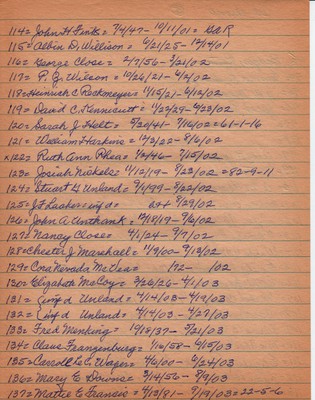 114= John H Fink= 7/4/47- 10/11/01= GAR
115= Albin D. Willison= 6/21/25- 12/14/01
116= George Close= 2/7/56- 3/21/02
117= P. G. Wilson= 10/26/21- 6/2/02
118= Heinrich C. Rockmeyer= 1/15/21- 6/12/02
119= David C. Kennicutt= 4/22/29- 6/22/02
120= Sarah J Holt= 5/20/41- 7/16/02= 61-1-16
121= William Harkins= 12/2/22- 8/6/02
x122= Ruth Ann Rhea= 1/2/46- 7/15/02
123= Josiah Nickels= 11/12/19- 8/23/02= 82-9-11
124= Stuart G Unland= 9/1/99- 8/22/02
125= J F Lasker= inf d= 8/29/02
126= John A Unthank= 12/18/19- 9/6/02
127= Nancy Close= 4/1/24- 9/7/02
128= Chester J Marshall= 11/9/00- 9/13/02
129= Cora Nevada McVea= /72- /02
130= Elizabeth McCoy= 3/26/26- 4/1/03
131= inf d Unland= 4/14/03- 4/19/03
132= inf d Unland= 4/14/03- 4/27/03
133= Fred Menking= 1/18/37- 3/21/03
134= Claus Franzenburg= 1/16/58- 6/15/03
135= Carroll C. Wager= 4/6/00- 6/24/03
136= Mary E Downs= 3/14/56- 8/9/03
137= Matie E Francis= 2/13/81- 7/19/03= 22-5-6